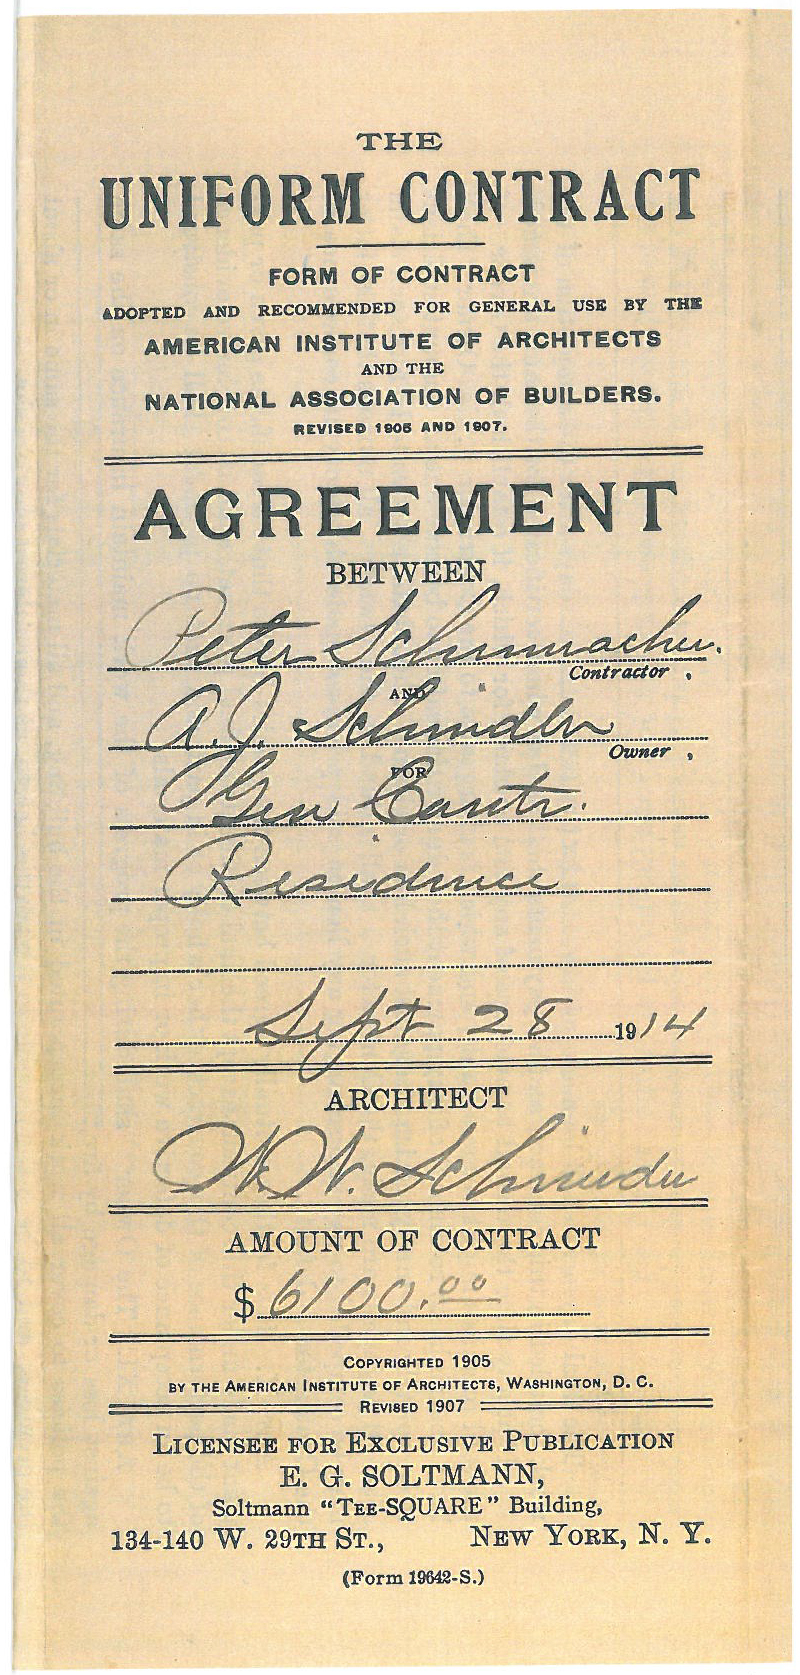 THE
UNIFORM CONTRACT
FORM OF CONTRACT
ADOPTED AND RECOMMENDED FOR GENERAL USE BY THE
AMERICAN INSTITUTE OF ARCHITECTS
AND THE
NATIONAL ASSOCIATION OF BUILDERS.
REVISED 1905 AND 1907.
AGREEMENT
BETWEEN
Peter Schumacher.
Contractor,
AND
A. J. Schindler
Owner,
FOR
Gen Contr.
Residence
Sept 28 1914
ARCHITECT
W. W. Schneider
AMOUNT OF CONTRACT
$ 6100.00
COPYRIGHTED 1905
BY THE AMERICAN INSTITUTE OF ARCHITECTS, WASHINGTON, D. C.
REVISED 1907
LICENSEE FOR EXCLUSIVE PUBLICATION
E. G. SOLTMANN,
Soltmann "TEE-SQUARE" Building,
134-140 W. 29TH ST., NEW YORK, N. Y.
(Form 19642-S.)